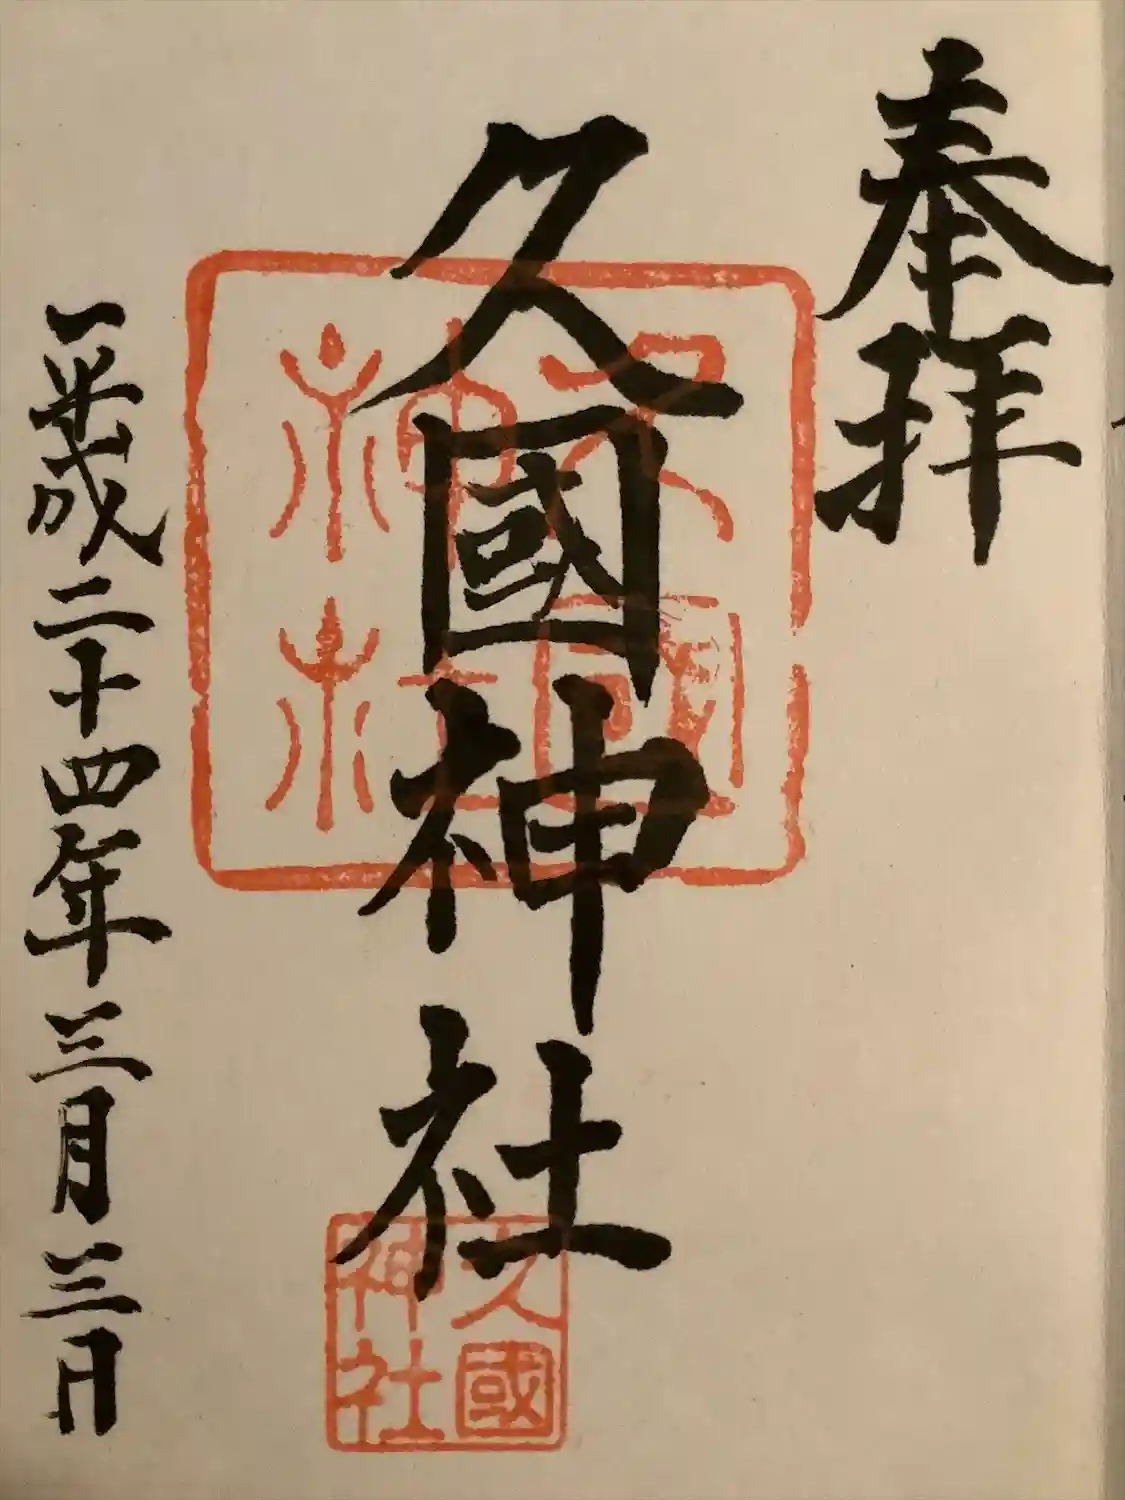 奉拝
久國神社
平成二十四年三月三日
久國神社
久國神社